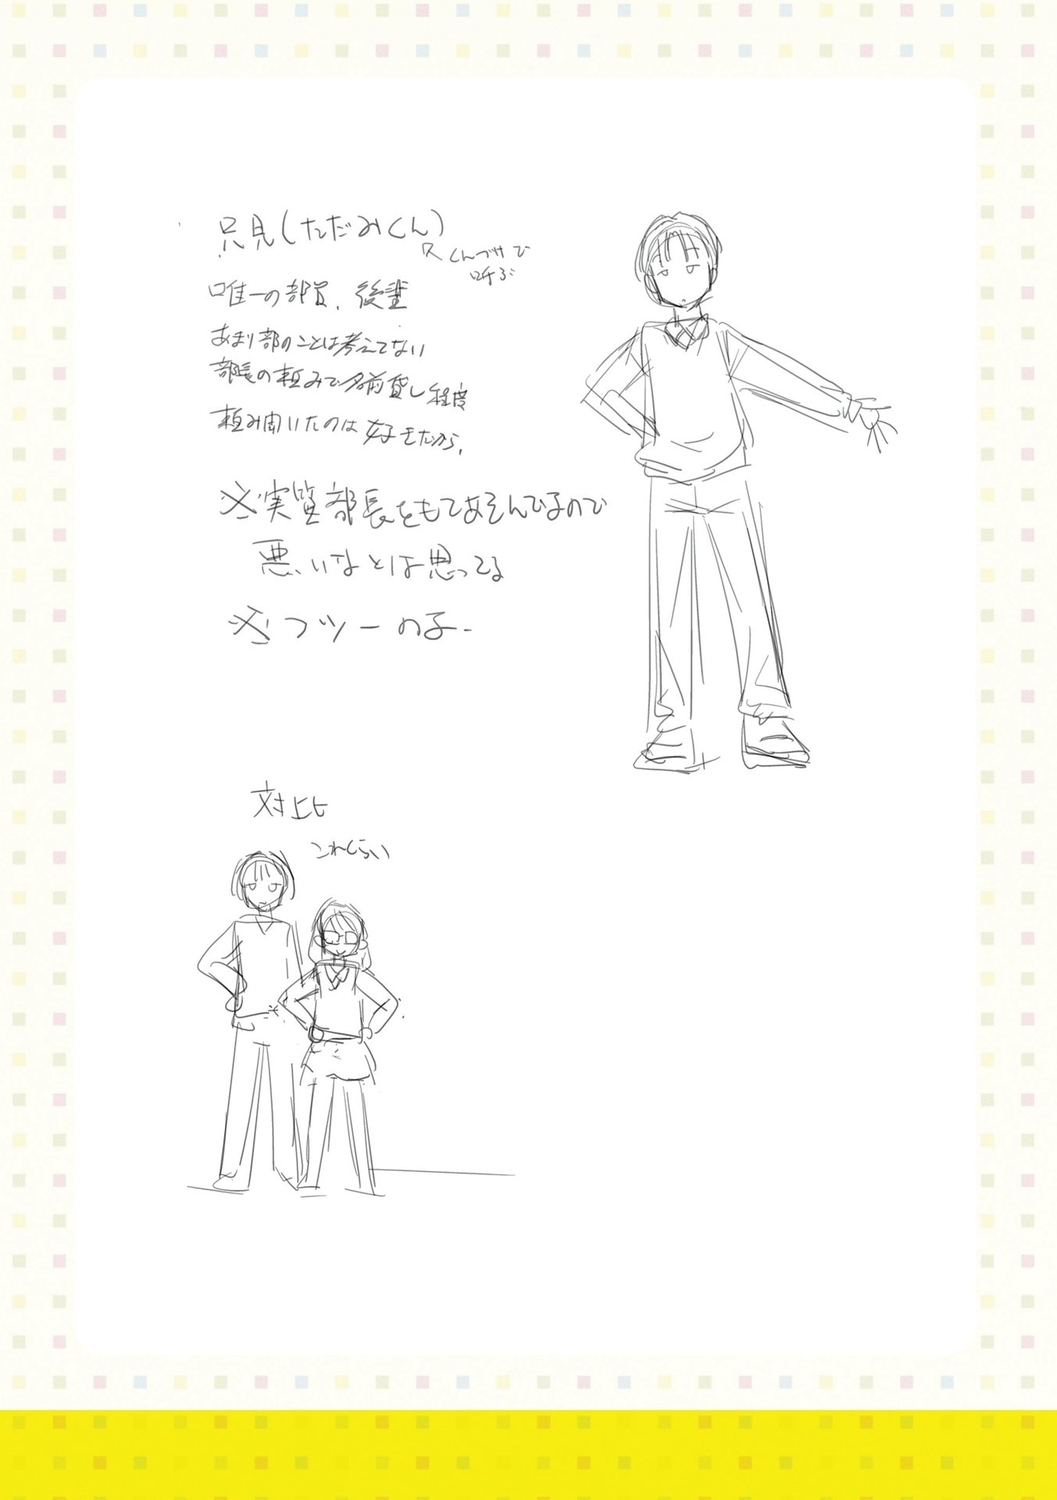 只見(ただみくん)
くんづけで
呼ぶ
唯一の部員、後輩
あまり部のことは考えてない
部長の頼みで名前貸し程度
頼み聞いたのは好きだから。
※実質部長をもてあそんでるので
悪いなとは思ってる
※フツーの子-
対比
これくらい